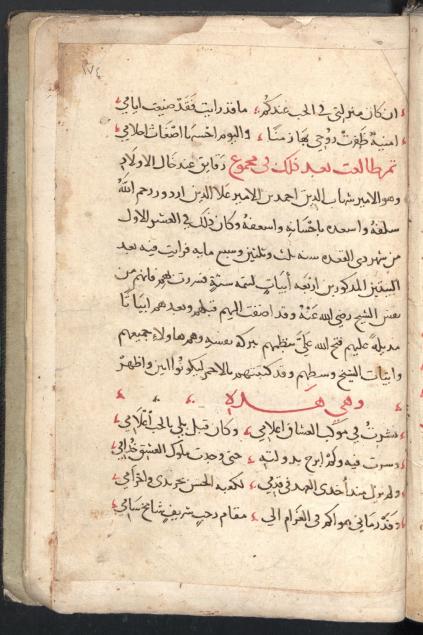 ١٧٤
ان كان منزلتي في الحب عندكم ما قد رايت فقد ضيعت ايامي
امنية ظفرت روحي بها زمنا واليوم احسبها اضغاث احلامي
ثم طالعت بعد ذلك في مجموع رقايق عند خال الاولاد
وهو الامير شهاب الدين احمد بن الامير علا الدين رحم الله
سلفه واسعده باحسانه واسعفه وكان ذلك في العشر الاول
من شهر ذي القعده سنة ثلث وتلتين وسبع مايه فرايت فيه بعد
البيتين المذكورين اربعة أبيات لتمة ستة فسررت بهم فانهم من
نفس الشيخ رضي الله عنه وقد اضفت اليهم قبلهم وبعدهم ابياتا
عليهم فتح الله علي بنظمهم ببركة نفسه وهم هاولاء جميعهم
وابيات الشيخ وسطهم وقد كتبتهم بالاحمر ليكونوا ابين واظهر
وهي هذه
نشرت في موكب العشاق اعلامي وكان قبلي بلي بالحب أعلامي
وسرت فيه ولم ابرح بدولته حتى وجدت ملوك العشق خدامي
ولم ازل منذ أخذي العهد في قدمي لكعبة الحسن تجريدي واحرامي
وقد رماني هواكم في الغرام الى مقام حب شريف شامخ سامي